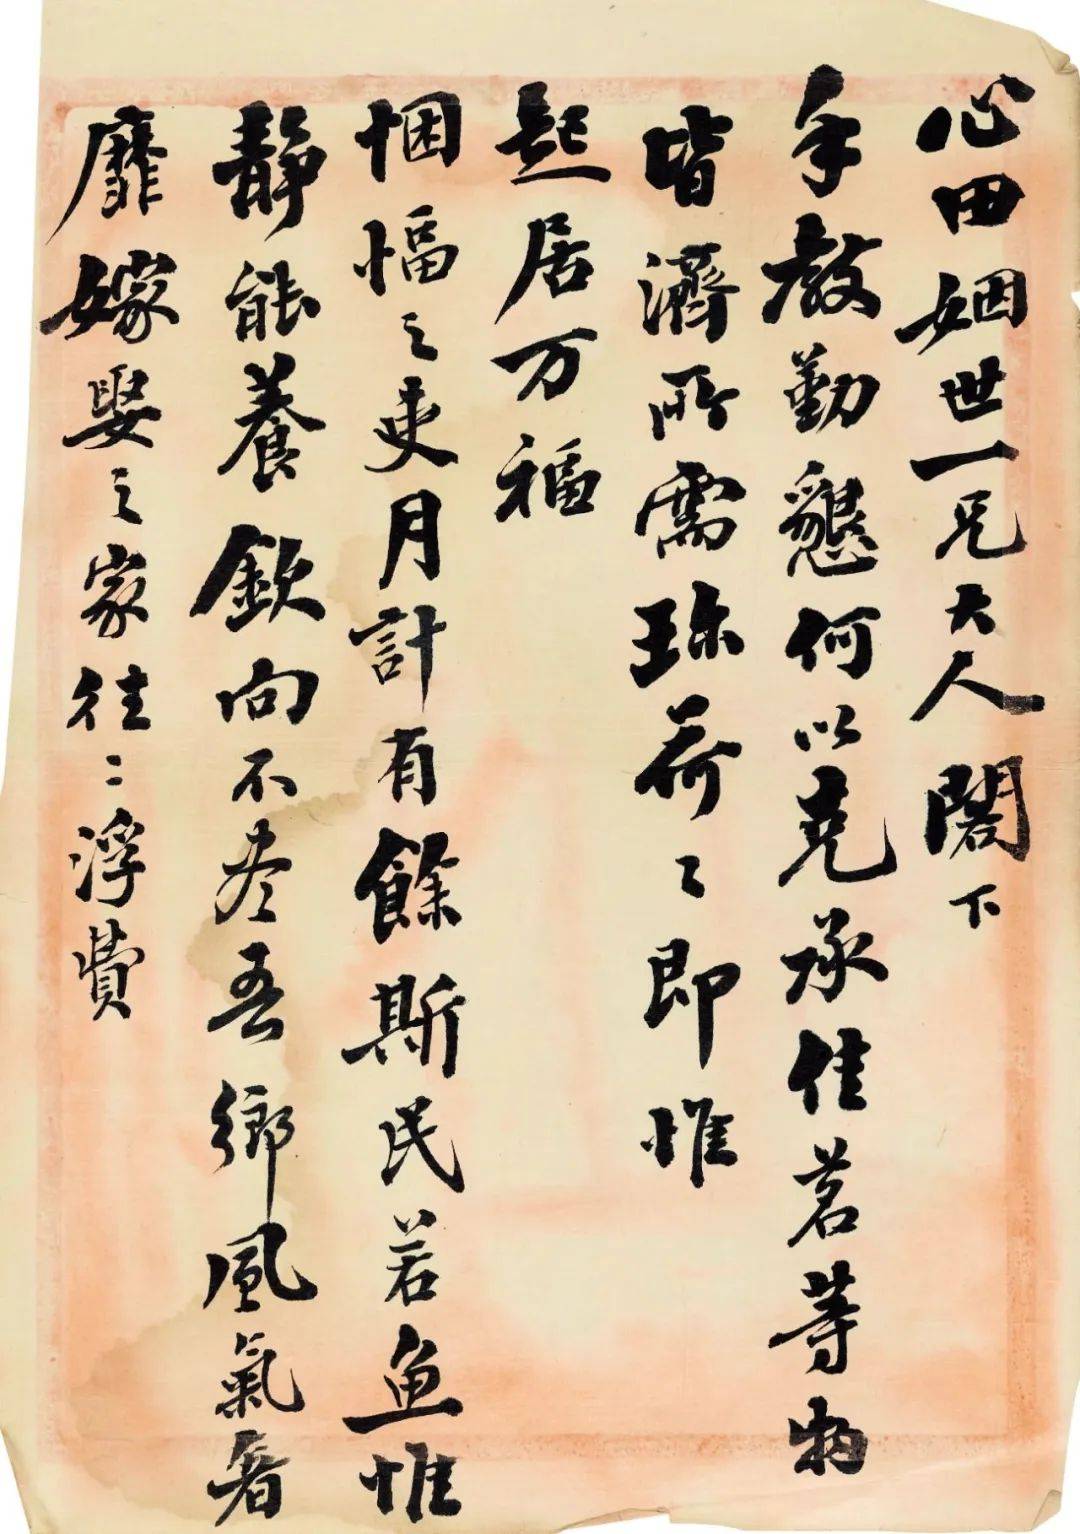 心田姻世一兄大人閣下
手教勤懇何以克承佳茗等物
皆濟所需珎荷〻即惟
起居万福
悃愊之吏月計有餘斯民若魚惟
静能養欽向不尽吾鄉風氣奢
靡嫁娶之家往〻浮費